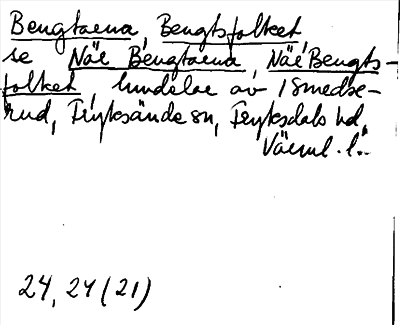 Bengtarna, Bengtsfolket,
se När Bengtarna, När Bengts-
folket, hundelar av Smedse-
rud, Fryksände sn, Fryksdals hd,
Värml. l.
24, 24 (21)